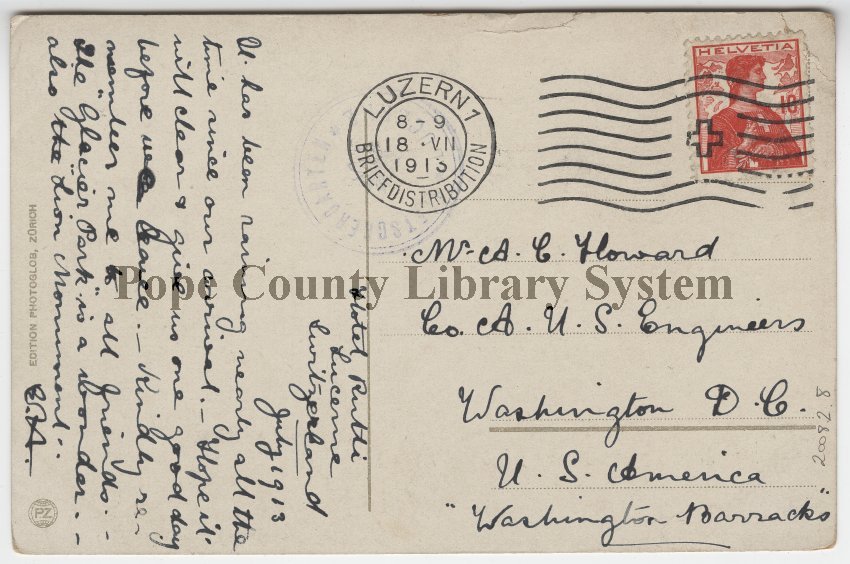 Hotel Rütli
Lucerne
Switzerland
July 1913
It has been raining nearly all the
time since our arrival. – Hope it
will clear & give us one good day
before we leave. – Kindly re-
member me to all friends. –
The "Glacier Park" is a wonder. –
also the "Lion Monument".
EDITION PHOTOGLOB, ZÜRICH
PZ
LUZERN 1
8–9
18 VII
1913
BRIEFDISTRIBUTION
HELVETIA
10
Mr. A. C. Howard
Co. A. U. S. Engineers
Washington D. C.
U. S. America
"Washington Barracks"
2082.8
Pope County Library System